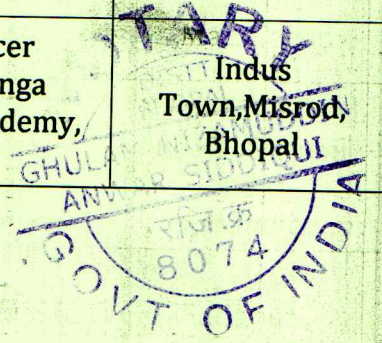 cer
nga
demy,
Indus
Town,Misrod,
Bhopal
TARY
GHULAM NIZAMUDDIN
ANWAR SIDDIQUI
8074
GOVT OF INDIA